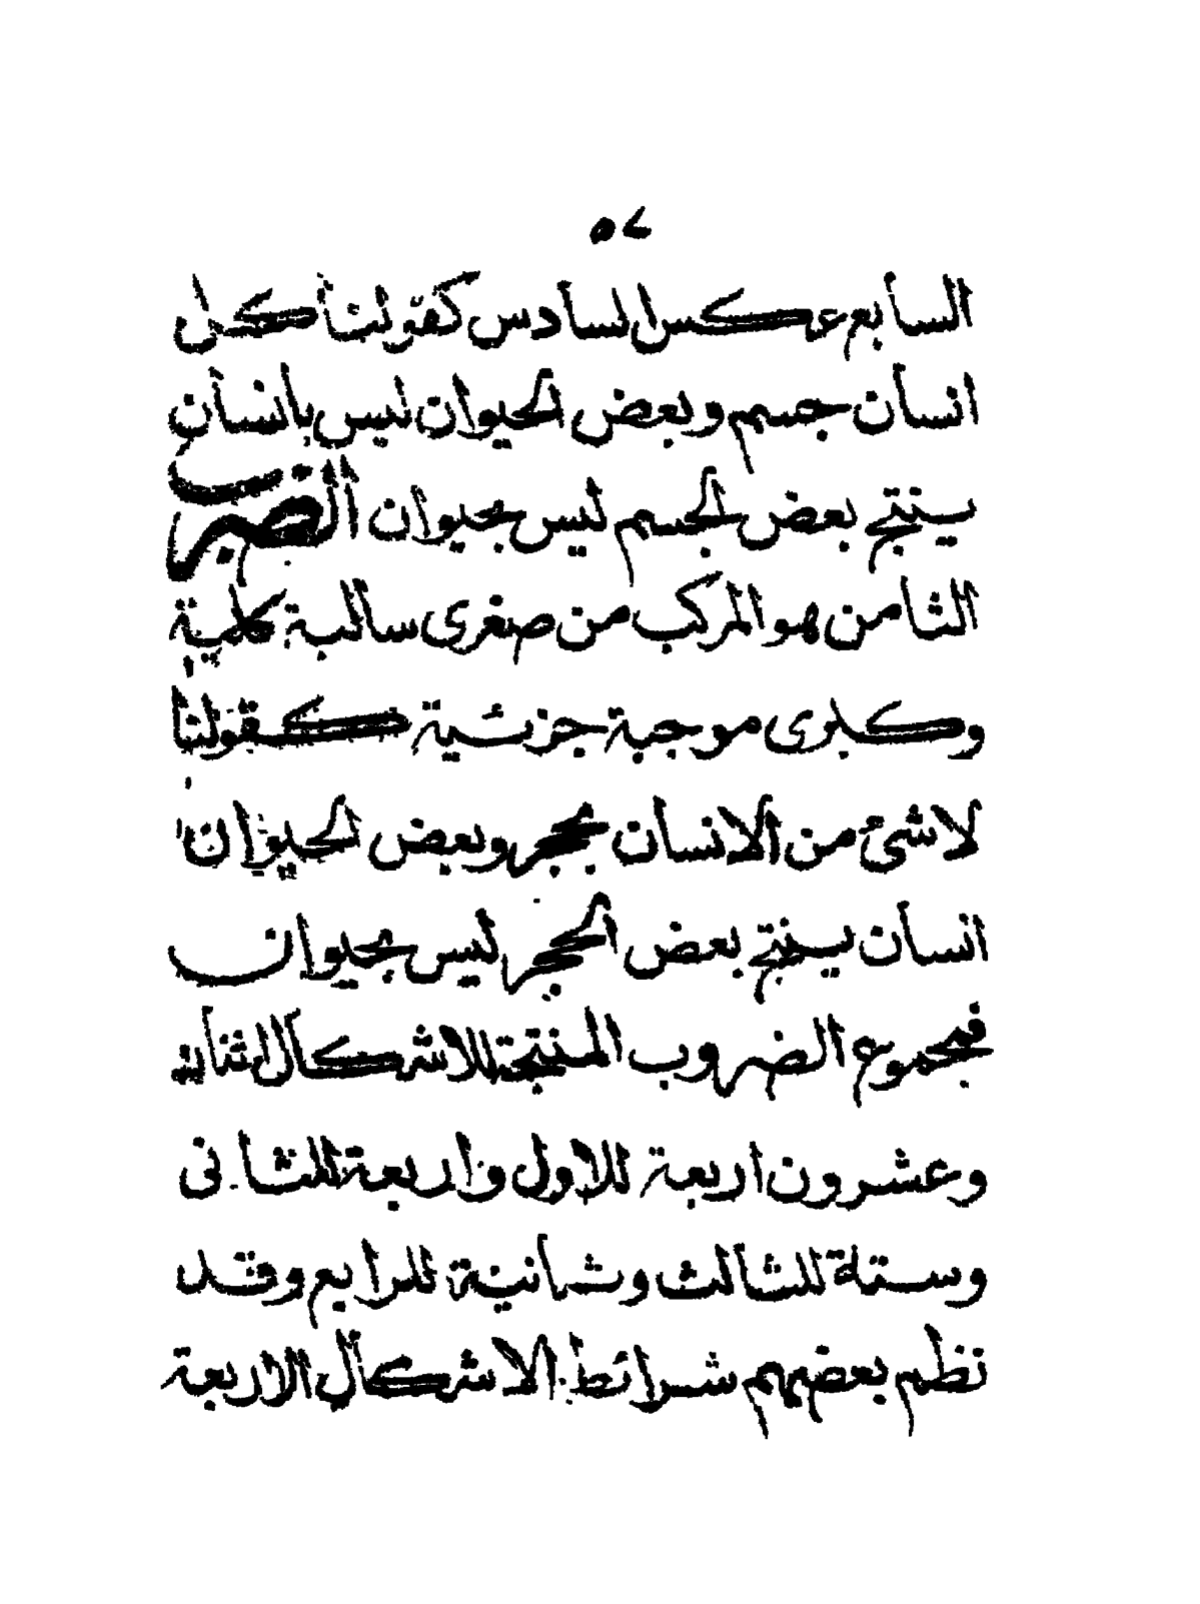 ٥٧
السابع عكس السادس كقولنا كل
انسان جسم وبعض الحيوان ليس بانسان
ينتج بعض الجسم ليس بحيوان الضرب
الثامن هو المركب من صغرى سالبة كلية
وكبرى موجبة جزئية كقولنا
لاشئ من الانسان بحجر وبعض الحيوان
انسان ينتج بعض الحجر ليس بحيوان
فمجموع الضروب المنتجة للاشكال اثنان
وعشرون اربعة للاول واربعة للثانى
وستة للثالث وثمانية للرابع وقد
نظم بعضهم شرائط الاشكال الاربعة